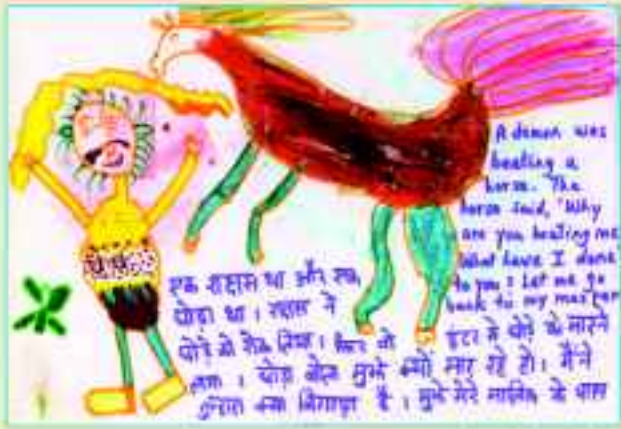 A demon was
beating a
horse. The
horse said, "Why
are you beating me
What have I done
to you? Let me go
back to my master
एक राक्षस था और एक
घोड़ा था। राक्षस ने
घोड़े को रोक लिया। फिर वो हंटर से घोड़े को मारने
लगा। घोड़ा बोला मुझे क्यों मार रहे हो। मैंने
तुम्हारा क्या बिगाड़ा है। मुझे मेरे मालिक के पास